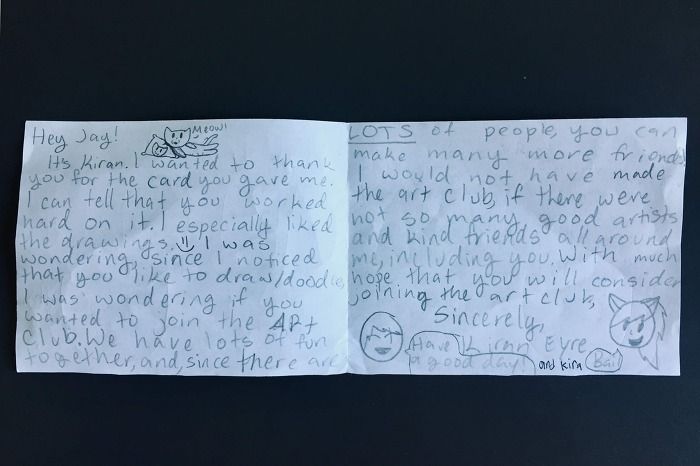 Hey Jay!
Meow!
It's Kiran. I wanted to thank
you for the card you gave me.
I can tell that you worked
hard on it. I especially liked
the drawings. I was
wondering, since I noticed
that you like to draw/doodle,
I was wondering if you
wanted to join the Art
Club. We have lots of fun
together, and, since there are
LOTS of people, you can
make many more friends
I would not have made
the art club, if there were
not so many good artists
and kind friends all around
me, including you. With much
hope that you will consider
joining the art club,
Sincerely,
Kiran Eyre
and kira
Have
a good day!
Bai